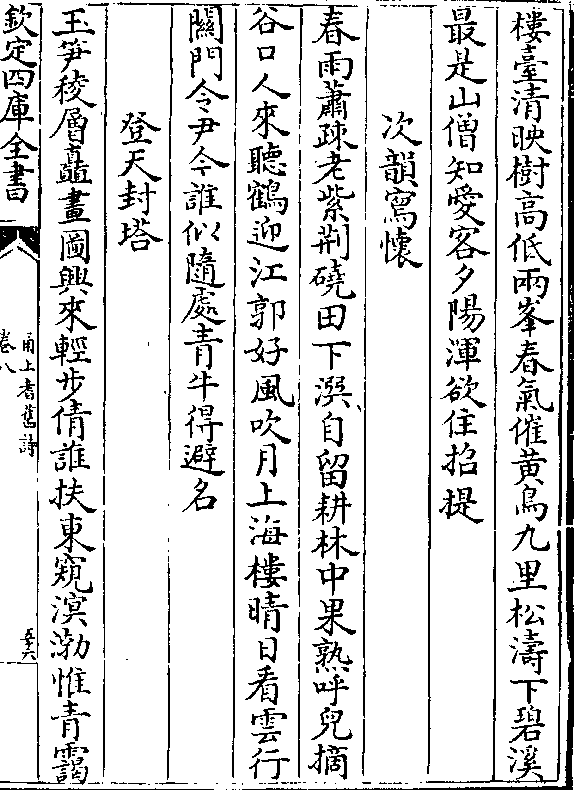 樓臺清映樹高低兩峯春氣催黃鳥九里松濤下碧溪
最是山僧知愛客夕陽渾欲住招提
次韻寫懷
春雨蕭疎老紫荆磽田下澴自留耕林中果熟呼兒摘
谷口人來聽鶴迎江郭好風吹月上海樓晴日看雲行
關門令尹今誰似隨處青牛得避名
登天封塔
玉笋稜層矗畫圖興來輕步倩誰扶東窺溟渤惟青靄
欽定四庫全書
甬上耆舊詩
卷八